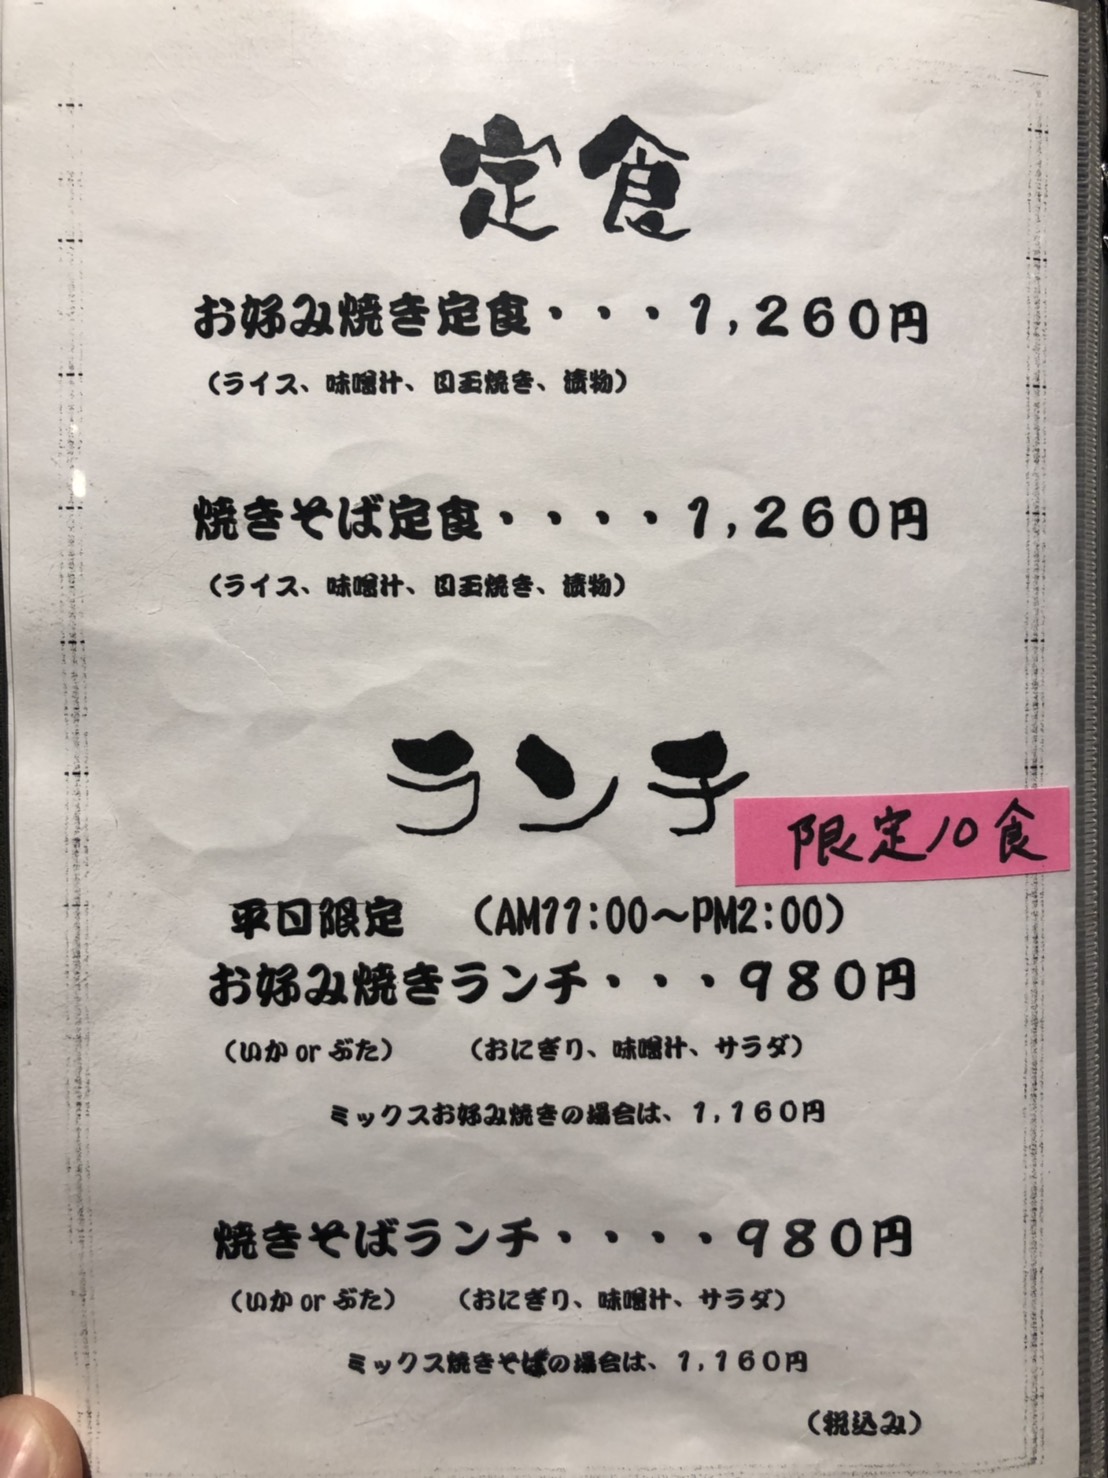 定食
お好み焼き定食・・・1,260円
(ライス、味噌汁、目玉焼き、漬物)
焼きそば定食・・・・1,260円
(ライス、味噌汁、目玉焼き、漬物)
ランチ
限定10食
平日限定 (AM11:00～PM2:00)
お好み焼きランチ・・・980円
(いか or ぶた) (おにぎり、味噌汁、サラダ)
ミックスお好み焼きの場合は、1,160円
焼きそばランチ・・・・980円
(いか or ぶた) (おにぎり、味噌汁、サラダ)
ミックス焼きそばの場合は、1,160円
(税込み)